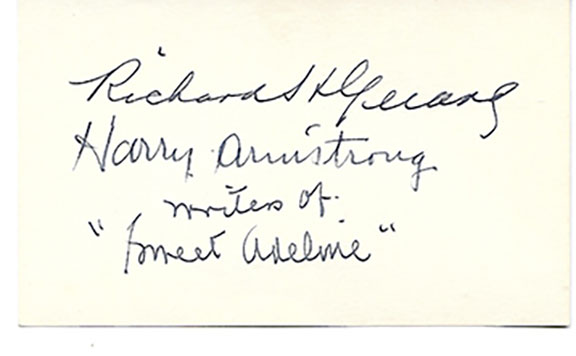 Richard H Gerard
Harry Armstrong
writers of
"Sweet Adeline"